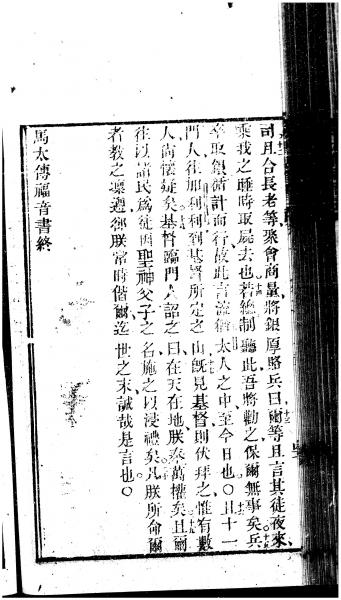 司且合長老等聚會商量將銀厚賂兵曰爾等且言其徒夜來
乘我之睡時取屍去也若總制聽此吾將勸之保爾無事矣兵
卒取銀循計而行故此言流猶太人之中至今日也○且十一
門人往加利利到基督所定之山既見基督則伏拜之惟有數
人尚懷疑矣基督臨門人詔之曰在天在地朕奉萬權矣且爾
往以諸民爲徒因聖神父子之名施之以浸禮矣凡朕所命爾
者教之凜遵朕常時偕爾迄世之末誠哉是言也○
馬太傳福音書終